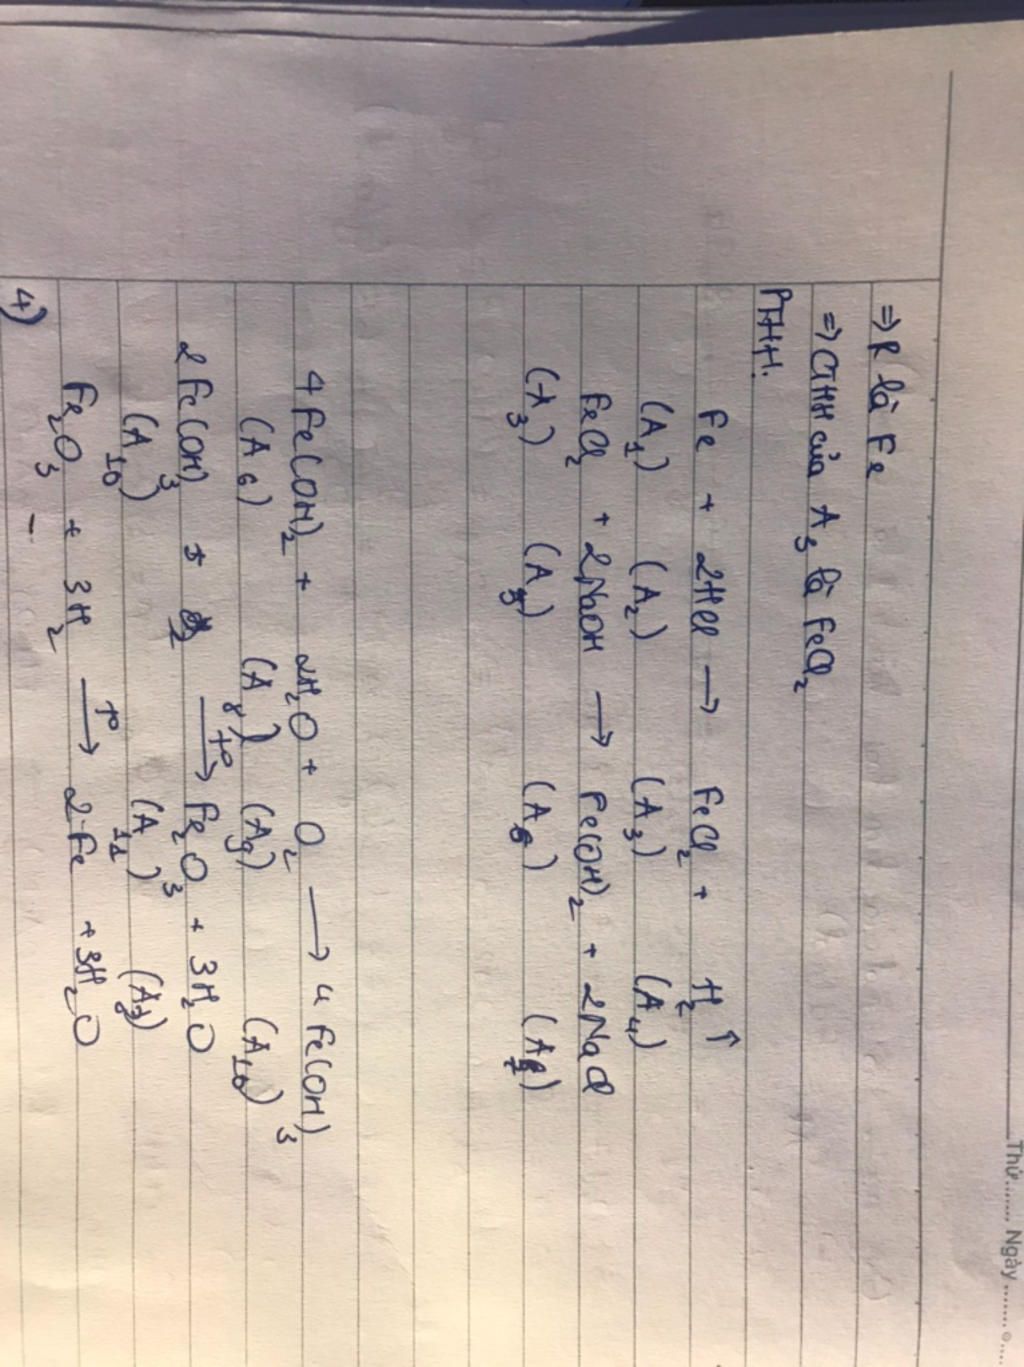 Thứ....... Ngày .......
=> R là Fe
=> CTHH của A3 là FeCl2
PTHH:
Fe + 2HCl → FeCl2 + H2 ↑
(A1) (A2) (A3) (A4)
FeCl2 + 2NaOH → Fe(OH)2 + 2NaCl
(A3) (A5) (A6) (A7)
4Fe(OH)2 + 2H2O + O2 → 4Fe(OH)3
(A6) (A8) (A9) (A10)
2Fe(OH)3 t° → Fe2O3 + 3H2O
(A10) (A11) (A8)
Fe2O3 + 3H2 t° → 2Fe + 3H2O
4)